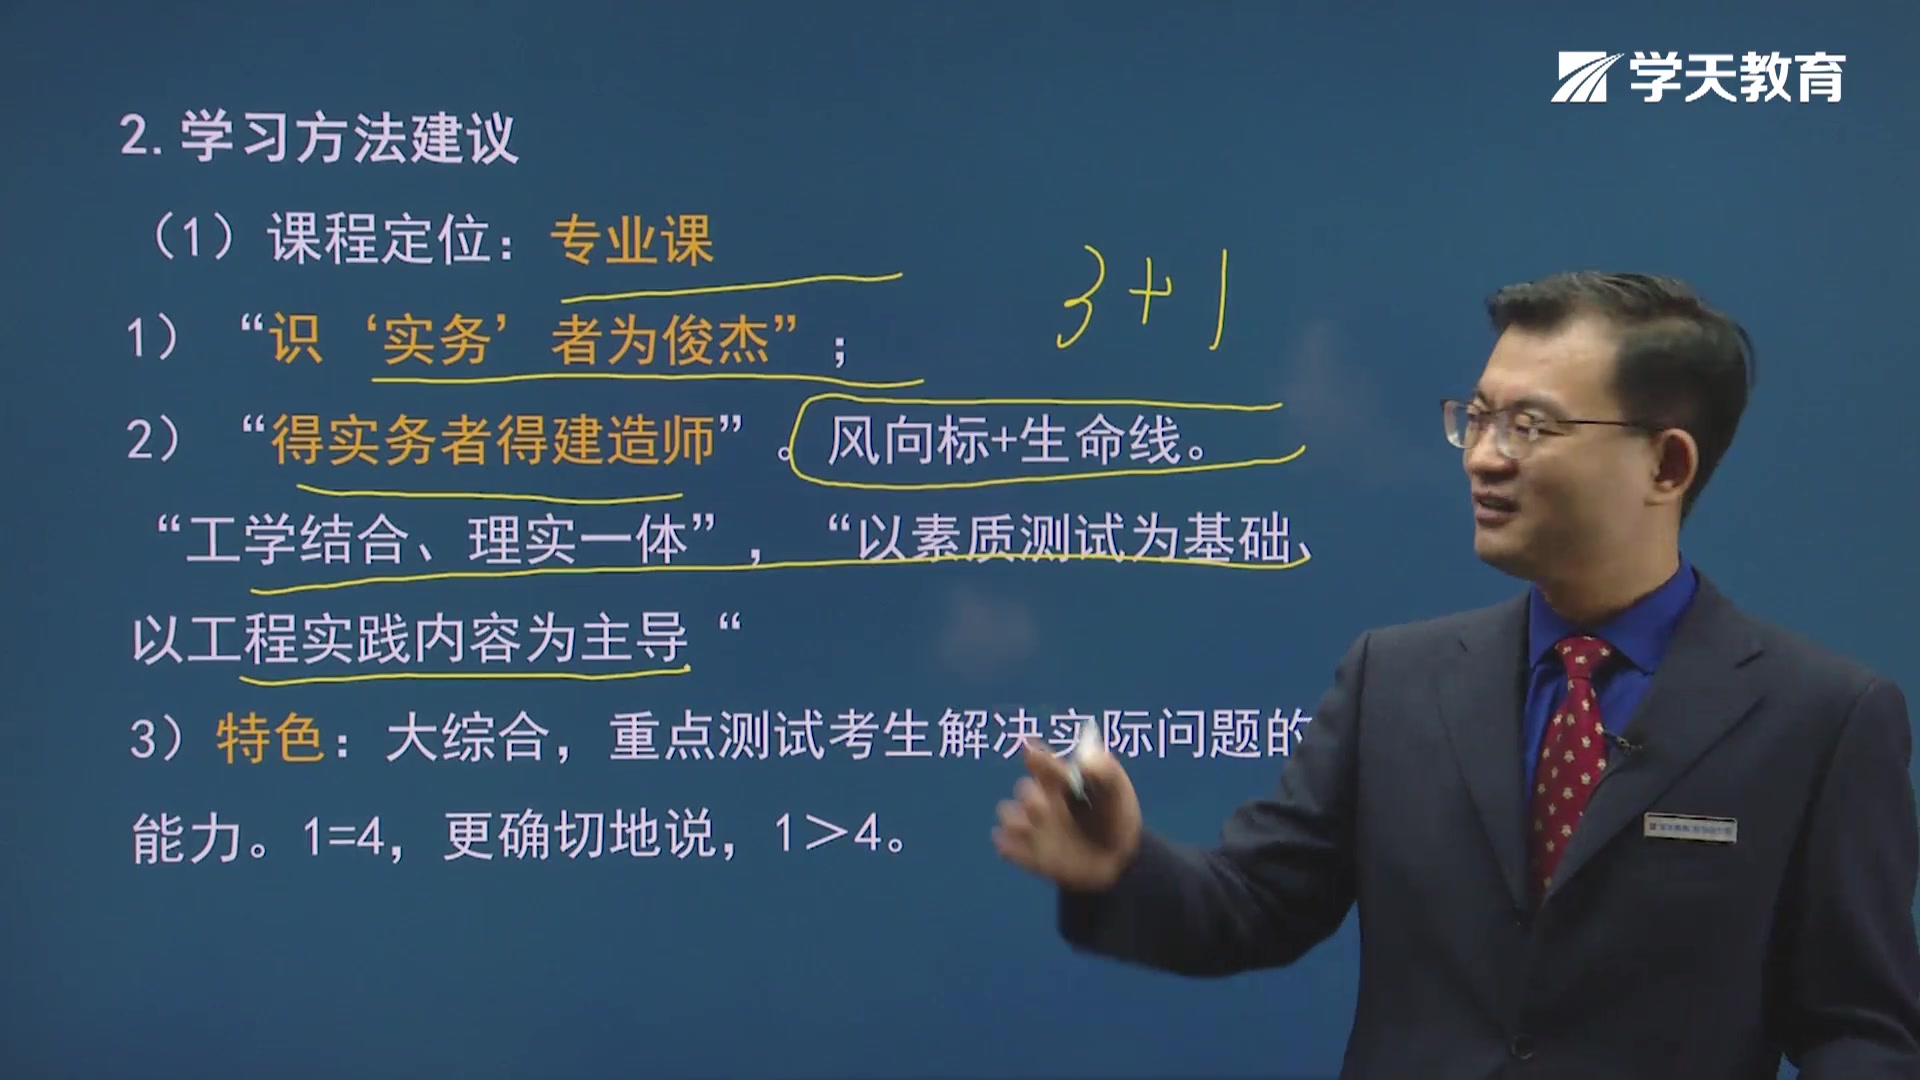 学天教育
2.学习方法建议
（1）课程定位：专业课
3+1
1）“识‘实务’者为俊杰”；
2）“得实务者得建造师”。风向标+生命线。
“工学结合、理实一体”，“以素质测试为基础、
以工程实践内容为主导“
3）特色：大综合，重点测试考生解决实际问题的
能力。1=4，更确切地说，1＞4。